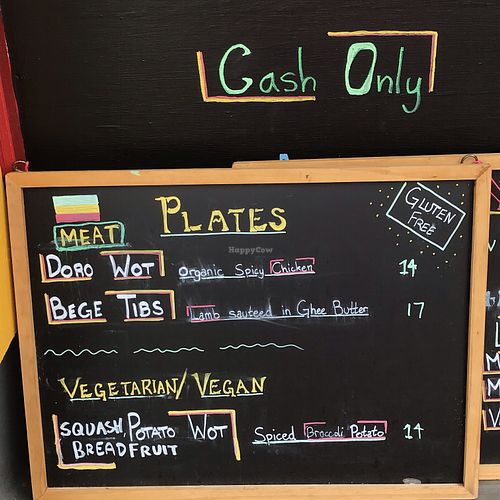 Cash Only
PLATES
GLUTEN
FREE
MEAT
DORO WOT Organic Spicy Chicken 14
BEGE TIBS Lamb sauteed in Ghee Butter 17
HappyCow
VEGETARIAN/VEGAN
SQUASH, POTATO WOT Spiced Broccoli Potato 14
BREADFRUIT